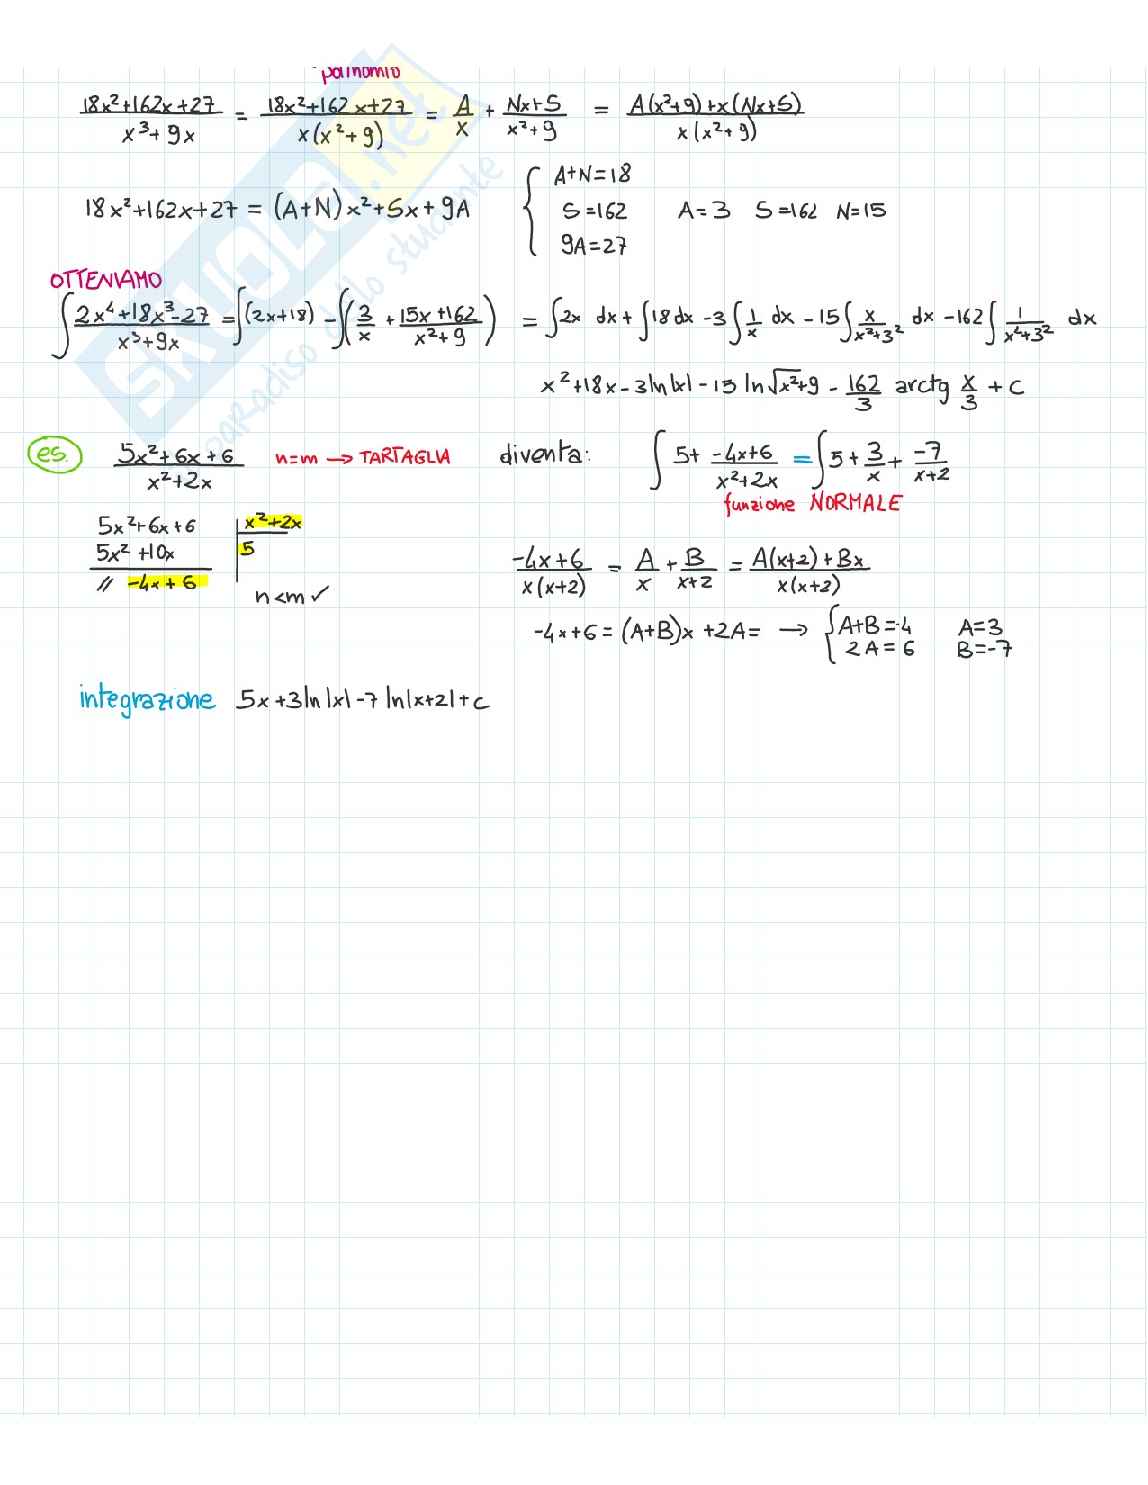 polinomio
18x²+162x+27 / x³+9x = 18x²+162x+27 / x(x²+9) = A/x + Nx+S / x²+9 = A(x²+9)+x(Nx+S) / x(x²+9)
18x²+162x+27 = (A+N)x²+Sx+9A { A+N=18
S=162 A=3 S=162 N=15
9A=27
OTTENIAMO
∫ 2x⁴+18x³-27 / x³+9x = ∫(2x+18) - ∫(3/x + 15x+162 / x²+9) = ∫2x dx + ∫18 dx - 3∫ 1/x dx - 15∫ x/x²+3² dx - 162∫ 1/x²+3² dx
x²+18x-3ln|x|-15 ln√x²+9 - 162/3 arctg x/3 + c
es. 5x²+6x+6 / x²+2x n=m → TARTAGLIA diventa: ∫ 5+ -4x+6 / x²+2x = ∫ 5+ 3/x + -7/x+2
funzione NORMALE
5x²+6x+6 | x²+2x
5x² +10x | 5
// -4x+6
n<m ✓
-4x+6 / x(x+2) = A/x + B/x+2 = A(x+2)+Bx / x(x+2)
-4x+6 = (A+B)x +2A= → { A+B=-4 A=3
2A=6 B=-7
integrazione 5x+3ln|x|-7 ln|x+2|+c
SKUOLA.net
paradiso dello studente